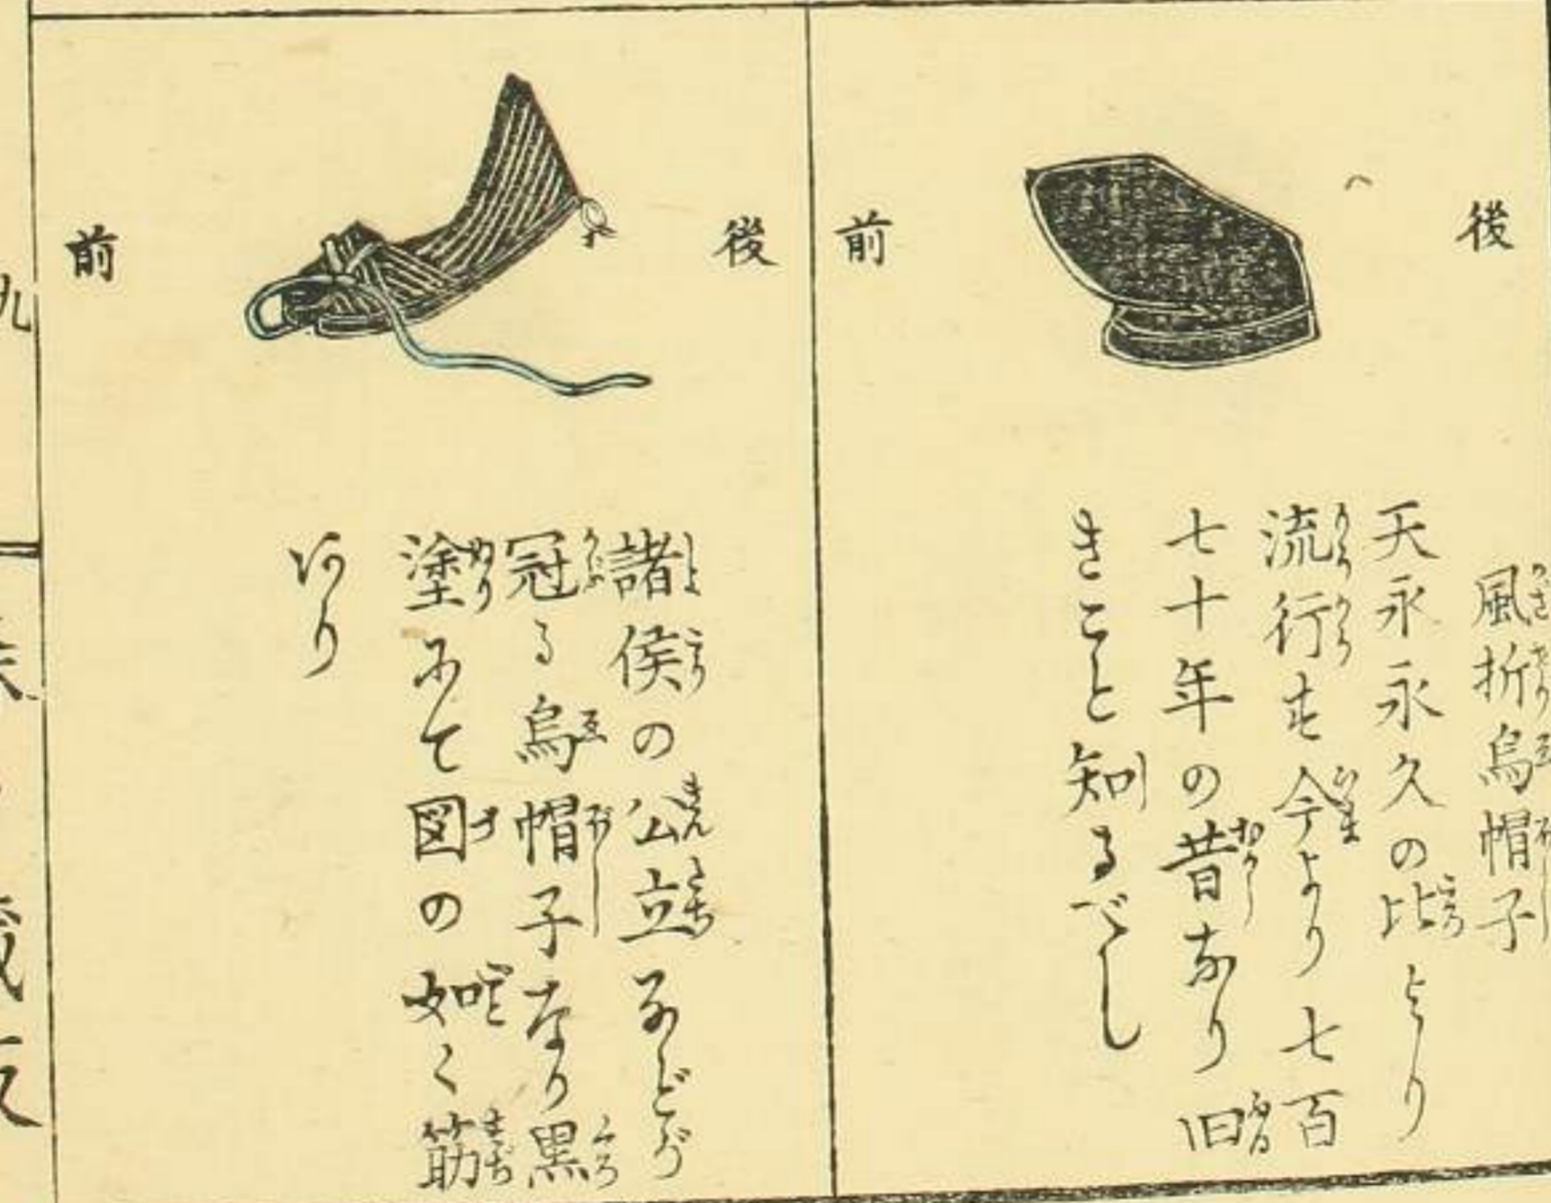 後
前
風折烏帽子
天永永久の比より
流行す今より七百
七十年の昔なり旧
きこと知るべし
後
前
諸侯の公立などが
冠る烏帽子なり黒
塗にて図の如く筋
あり